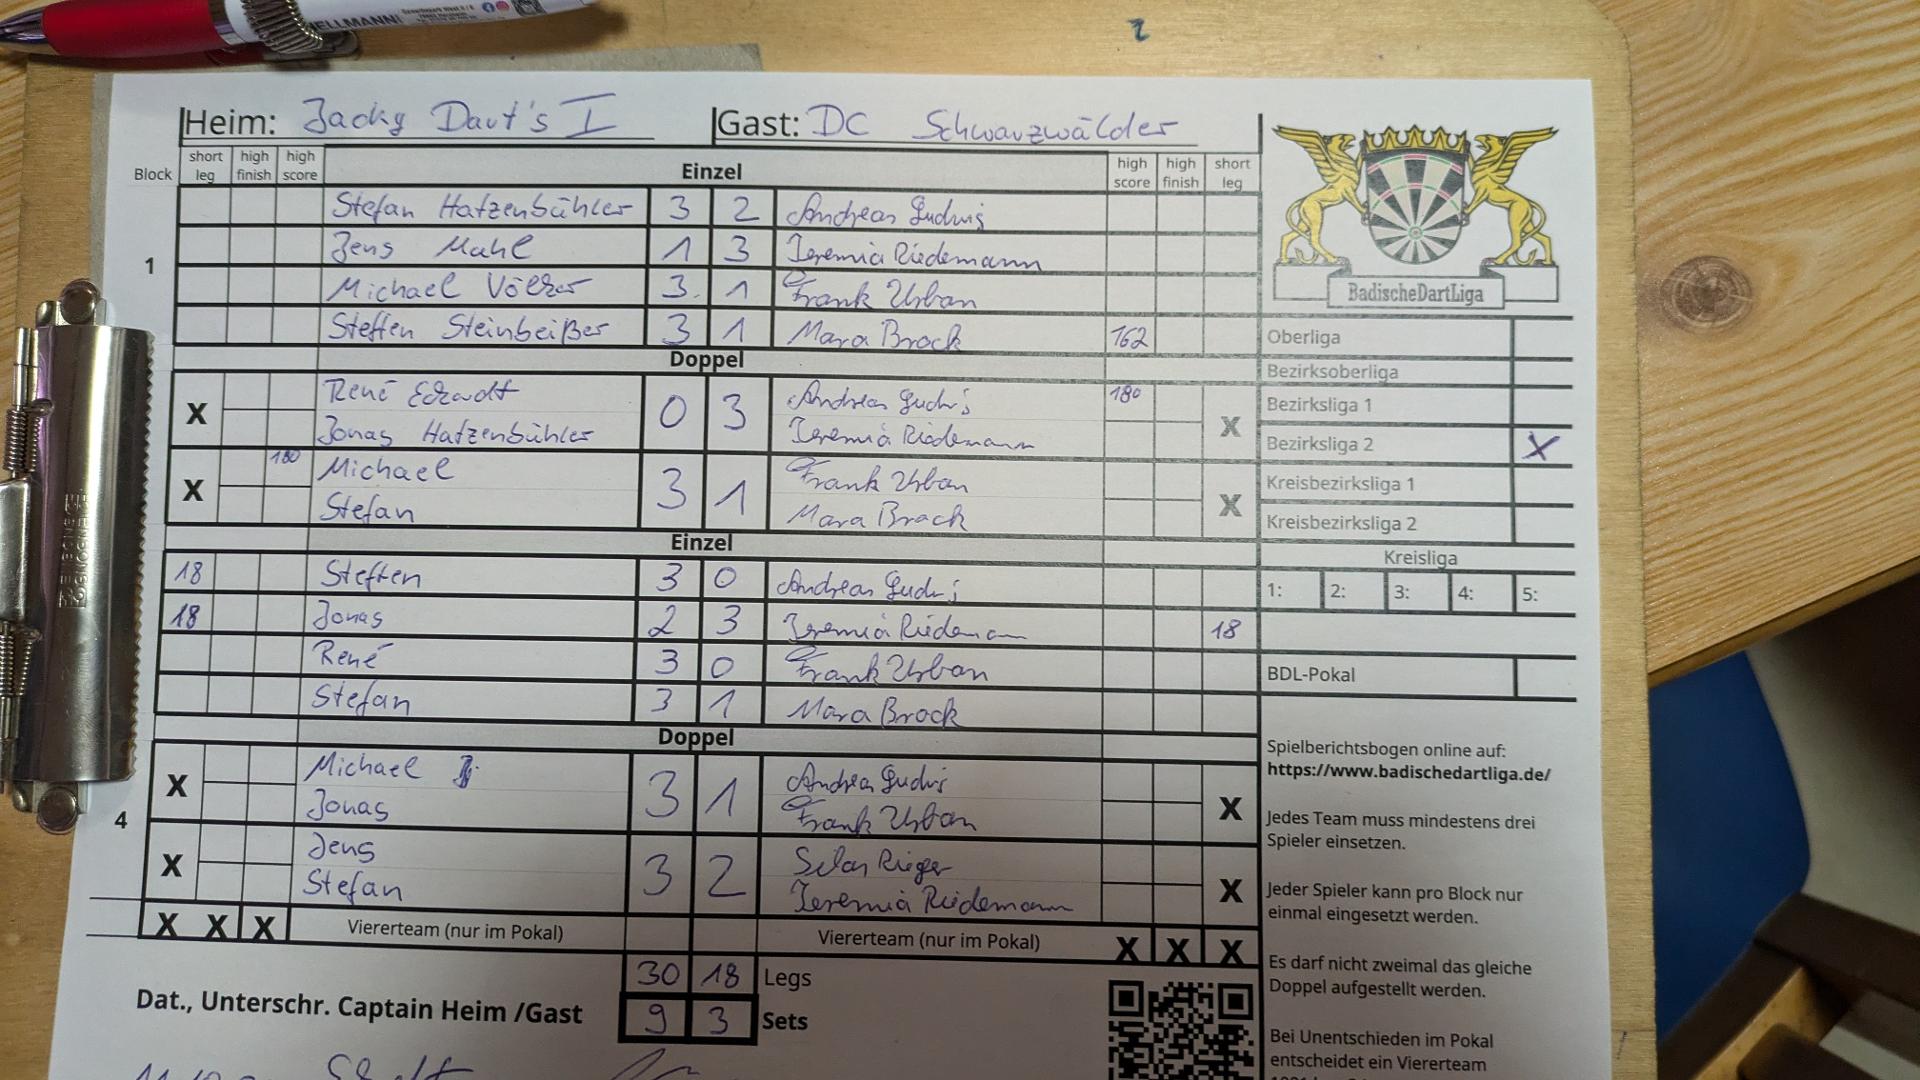 HELLMANN
Heim: Jacky Dart's I Gast: DC Schwarzwälder
Block short leg high finish high score Einzel high score high finish short leg
Stefan Hatzenbühler 3 2 Andreas Ludwig
1 Jens Mahl 1 3 Jeremia Riedemann
Michael Völker 3 1 Frank Urban
Steffen Steinbeißer 3 1 Mara Brock 162
Doppel
X René Eckardt 0 3 Andreas Ludwig 180 X
Jonas Hatzenbühler Jeremia Riedemann
X 180 Michael 3 1 Frank Urban X
Stefan Mara Brock
Einzel
18 Steffen 3 0 Andreas Ludwig
18 Jonas 2 3 Jeremia Riedemann 18
René 3 0 Frank Urban
Stefan 3 1 Mara Brock
Doppel
4 X Michael 3 1 Andreas Ludwig X
Jonas Frank Urban
X Jens 3 2 Rieger X
Stefan Jeremia Riedemann
X X X Viererteam (nur im Pokal) Viererteam (nur im Pokal) X X X
30 18 Legs
Dat., Unterschr. Captain Heim /Gast 9 3 Sets
BadischeDartLiga
Oberliga
Bezirksoberliga
Bezirksliga 1
Bezirksliga 2 X
Kreisbezirksliga 1
Kreisbezirksliga 2
Kreisliga
1: 2: 3: 4: 5:
BDL-Pokal
Spielberichtsbogen online auf:
https://www.badischedartliga.de/
Jedes Team muss mindestens drei
Spieler einsetzen.
Jeder Spieler kann pro Block nur
einmal eingesetzt werden.
Es darf nicht zweimal das gleiche
Doppel aufgestellt werden.
Bei Unentschieden im Pokal
entscheidet ein Viererteam